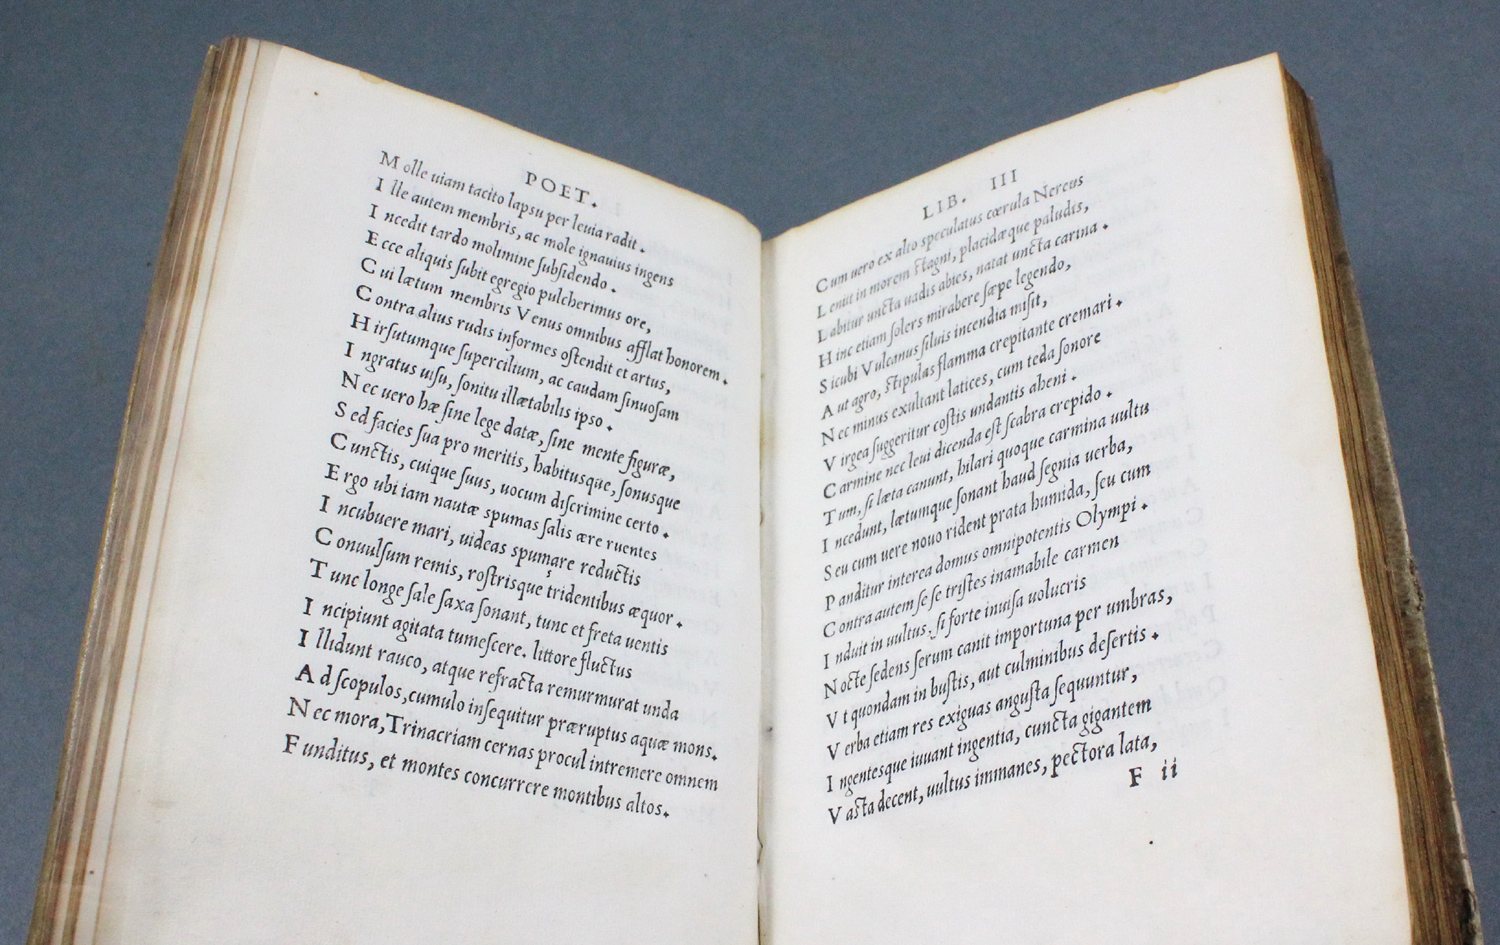 POET.
Molle uiam tacito lapsu per leuia radit.
Ille autem membris, ac mole ignauius ingens
Incedit tardo molimine ſubſidendo.
Ecce aliquis ſubit egregio pulcherimus ore,
Cui lætum membris Venus omnibus afflat honorem.
Contra alius rudis informes oſtendit et artus,
Hirſutumque ſupercilium, ac caudam ſinuoſam
Ingratus uiſu, ſonitu illætabilis ipſo.
Nec uero hæ ſine lege datæ, ſine mente figuræ,
Sed facies ſua pro meritis, habitusque, ſonusque
Cunctis, cuique ſuus, uocum diſcrimine certo.
Ergo ubi iam nautæ spumas ſalis ære ruentes
Incubuere mari, uideas spumare reductis
Conuulſum remis, roſtrisque tridentibus æquor.
Tunc longe ſale ſaxa ſonant, tunc et freta uentis
Incipiunt agitata tumeſcere. littore fluctus
Illidunt rauco, atque refracta remurmurat unda
Ad ſcopulos, cumulo inſequitur præruptus aquæ mons.
Nec mora, Trinacriam cernas procul intremere omnem
Funditus, et montes concurrere montibus altos.
LIB. III
Cum uero ex alto speculatus cærula Nereus
Leniit in morem ſtagni, placidæque paludis,
Labitur uncta uadis abies, natat uncta carina.
Hinc etiam ſolers mirabere ſæpe legendo,
Sicubi Vulcanus ſiluis incendia miſit,
Aut agro, ſtipulas flamma crepitante cremari.
Nec minus exultant latices, cum teda ſonore
Virgea ſuggeritur coſtis undantis aheni.
Carmine nec leui dicenda eſt ſcabra crepido.
Tum, ſi læta canunt, hilari quoque carmina uultu
Incedunt, lætumque ſonant haud ſegnia uerba,
Seu cum uere nouo rident prata humida, ſeu cum
Panditur interea domus omnipotentis Olympi.
Contra autem ſe ſe triſtes inamabile carmen
Induit in uultus, ſi forte inuiſa uolucris
Nocte ſedens ſerum canit importuna per umbras,
Vt quondam in buſtis, aut culminibus deſertis.
Verba etiam res exiguas anguſta ſequuntur,
Ingentesque iuuant ingentia, cuncta gigantem
Vaſta decent, uultus immanes, pectora lata,
F ii